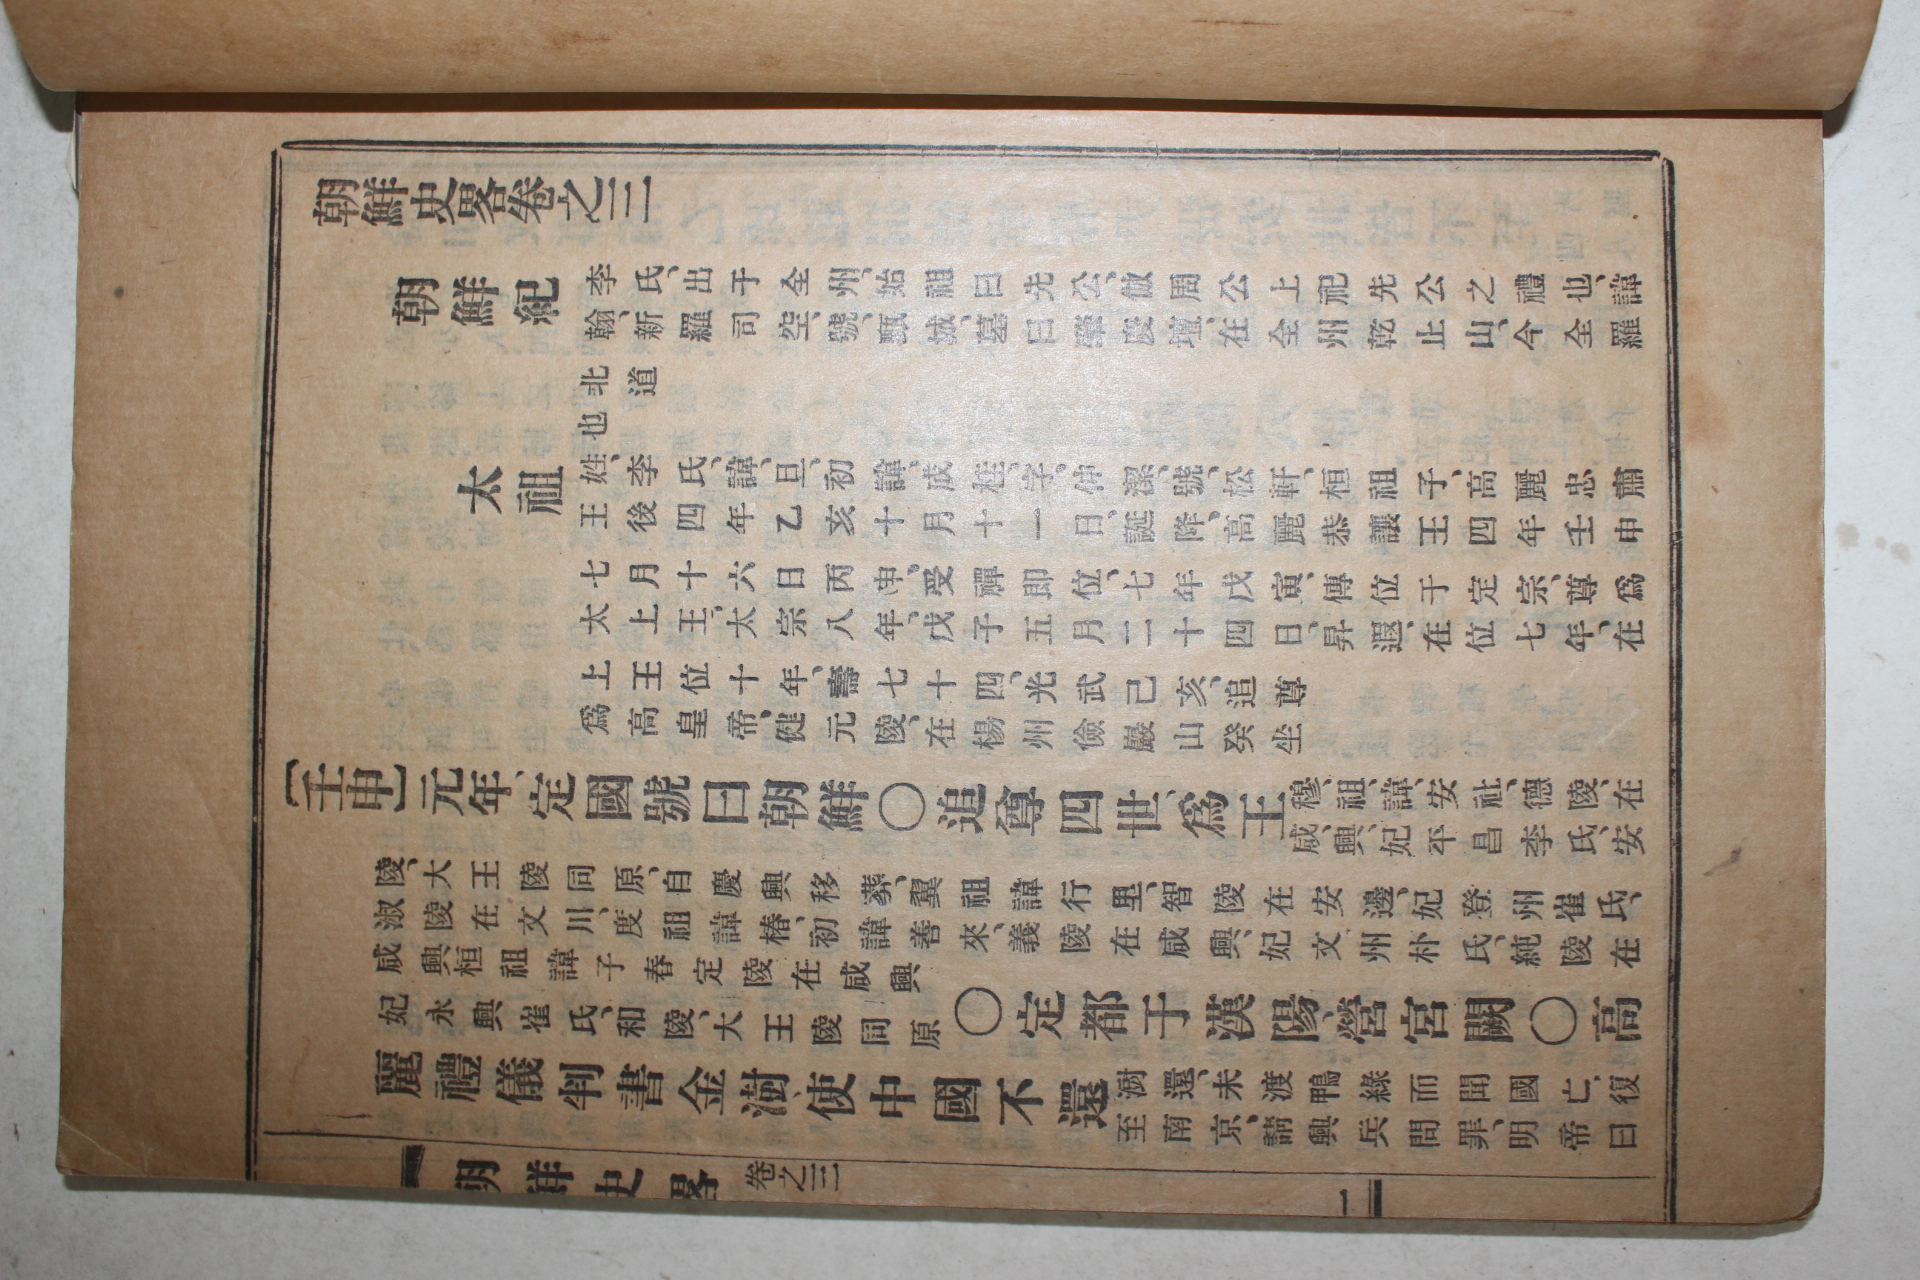 朝鮮史畧卷之三
朝鮮紀
李氏、出于全州、始祖曰先公、倣周公上祀先公之禮也、諱
翰、新羅司空、號、甄城、墓曰肇慶壇、在全州乾止山、今全羅
北道
也
太祖
姓、李氏、諱、旦、初諱、成桂、字、仲潔、號、松軒、桓祖子、高麗忠肅
王後四年乙亥十月十一日、誕降、高麗恭讓王四年壬申
七月十六日丙申、受禪即位、七年戊寅、傳位于定宗、尊爲
太上王、太宗八年、戊子五月二十四日、昇遐、在位七年、在
上王位十年、壽七十四、光武己亥、追尊
爲高皇帝、健元陵、在楊州儉巖山癸坐
【壬申】元年、定國號曰朝鮮〇追尊四世、爲王
穆、祖、諱、安社、德陵、在
咸、興、妃平昌李氏、安
陵、大王陵同原、自慶興移葬、翼祖諱行里、智陵在安邊、妃登州崔氏、
淑陵在文川、度祖諱椿、初諱善來、義陵在咸興、妃文州朴氏、純陵在
咸興桓祖諱子春定陵在咸興
妃永興崔氏、和陵、大王陵同原
〇定都于漢陽、營宮闕〇高
麗禮儀判書金澍、使中國不還
澍還、未渡鴨綠而聞國亡、復
至南京、請興兵問罪、明帝曰
朝鮮史畧
卷之三
一